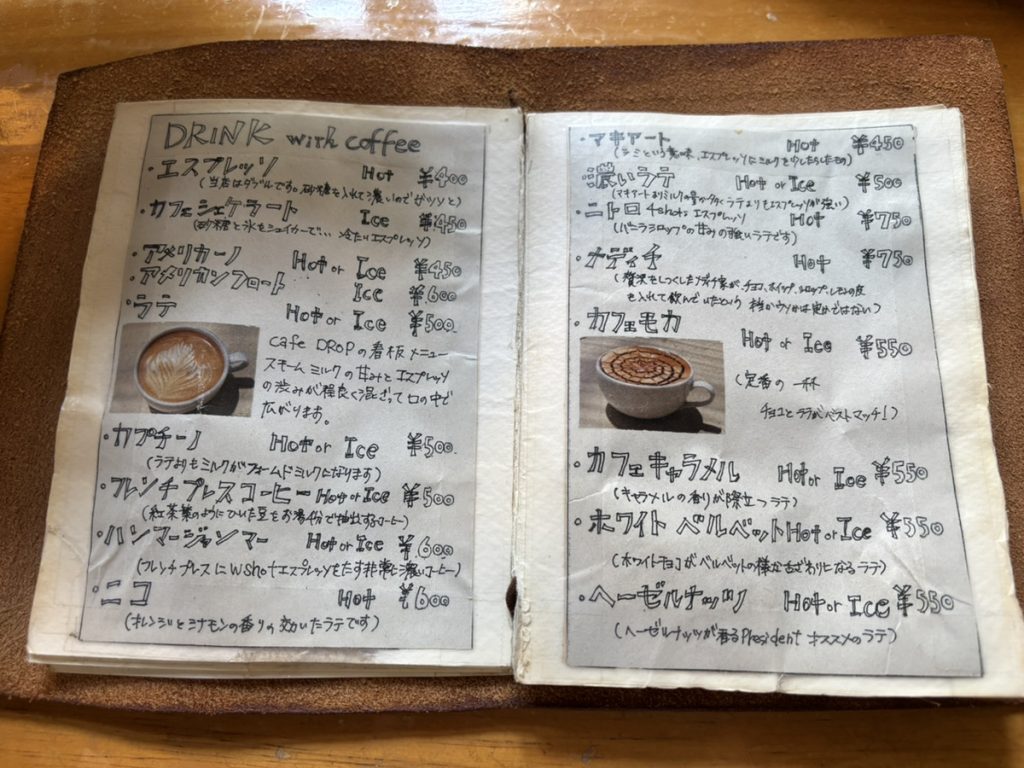 DRINK with coffee
・エスプレッソ Hot ¥400
(当店はダブルです。砂糖を入れて濃いのでグッと)
・カフェシェケラート Ice ¥450
(砂糖と氷をシェイカーで… 冷たいエスプレッソ)
・アメリカーノ Hot or Ice ¥450
・アメリカンフロート Ice ¥600
・ラテ Hot or Ice ¥500
cafe DROPの看板メニュー
スチームミルクの甘みとエスプレッソ
の渋みが程良く混ざって口の中で
広がります。
・カプチーノ Hot or Ice ¥500
(ラテよりもミルクがフォームドミルクになります)
・フレンチプレスコーヒー Hot or Ice ¥500
(紅茶葉のようにひいた豆をお湯4分で抽出するコーヒー)
・ハンマージャンマー Hot or Ice ¥600
(フレンチプレスにwshotエスプレッソをたす非常に濃いコーヒー)
・ニコ Hot ¥600
(オレンジとシナモンの香りの効いたラテです)
・マキアート Hot ¥450
(シミという意味、エスプレッソにミルクを少したらしたもの)
・濃いラテ Hot or Ice ¥500
(マキアートよりミルクの量が多く ラテよりもエスプレッソが強い)
・ニトロ 4shotsエスプレッソ Hot ¥750
(バニラシロップの甘みの強いラテです)
・メディチ Hot ¥750
(贅沢をしつくしたメディチ家が、チョコ、ホイップ、シロップ、レモンの皮
を入れて飲んでいたという
定かではない)
・カフェモカ Hot or Ice ¥550
(定番の一杯
チョコとラテがベストマッチ!)
・カフェキャラメル Hot or Ice ¥550
(キャラメルの香りが際立つラテ)
・ホワイトベルベット Hot or Ice ¥550
(ホワイトチョコがベルベットの様な舌ざわりになるラテ)
・ヘーゼルナッツ Hot or Ice ¥550
(ヘーゼルナッツが香るPresidentオススメのラテ)